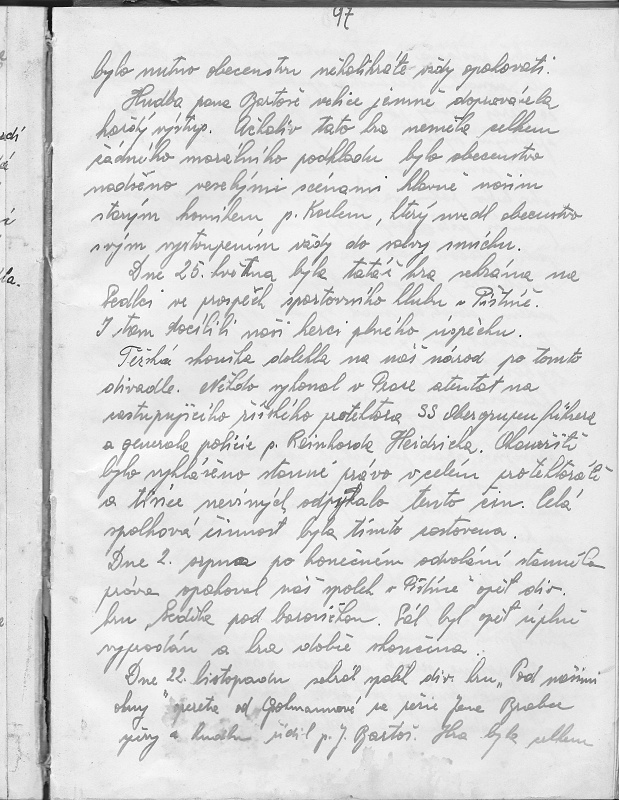 97
bylo nutno obecenstvu několikráte vždy opakovati.
Hudba pana Bartoše velice jemně doprovázela
každý výstup. Ačkoliv tato hra neměla celkem
žádného morálního podkladu bylo obecenstvo
nadšeno veselými scénami hlavně naším
starým komikem p. Karlem, který uvedl obecenstvo
svým vystoupením vždy do salvy smíchu.
Dne 25. května byla tatáž hra sehrána na
Sedlci ve prospěch sportovního klubu v Píštině.
I tam docílili naši herci plného úspěchu.
Těžká zkouška dolehla na náš národ po tomto
divadle. Někdo vykonal v Praze atentát na
zastupujícího říšského protektora SS Obergrupenführera
a generála policie p. Reinharda Heidricha. Okamžitě
bylo vyhlášeno stanné právo v celém protektorátě
a tisíce nevinných odpykalo tento čin. Celá
spolková činnost byla tímto zastavena.
Dne 2. srpna po konečném odvolání stanného
práva opakoval náš spolek v Píštině opět div.
hru „Sedlka pod borovičkou. Sál byl opět úplně
vyprodán a hra dobře skončena.
Dne 22. listopadu sehrál spolek div. hru „Pod našimi
okny" opereta od se režie Jana Brabce
zpěvy a hudbu řídil p. J. Bartoš. Hra byla celkem